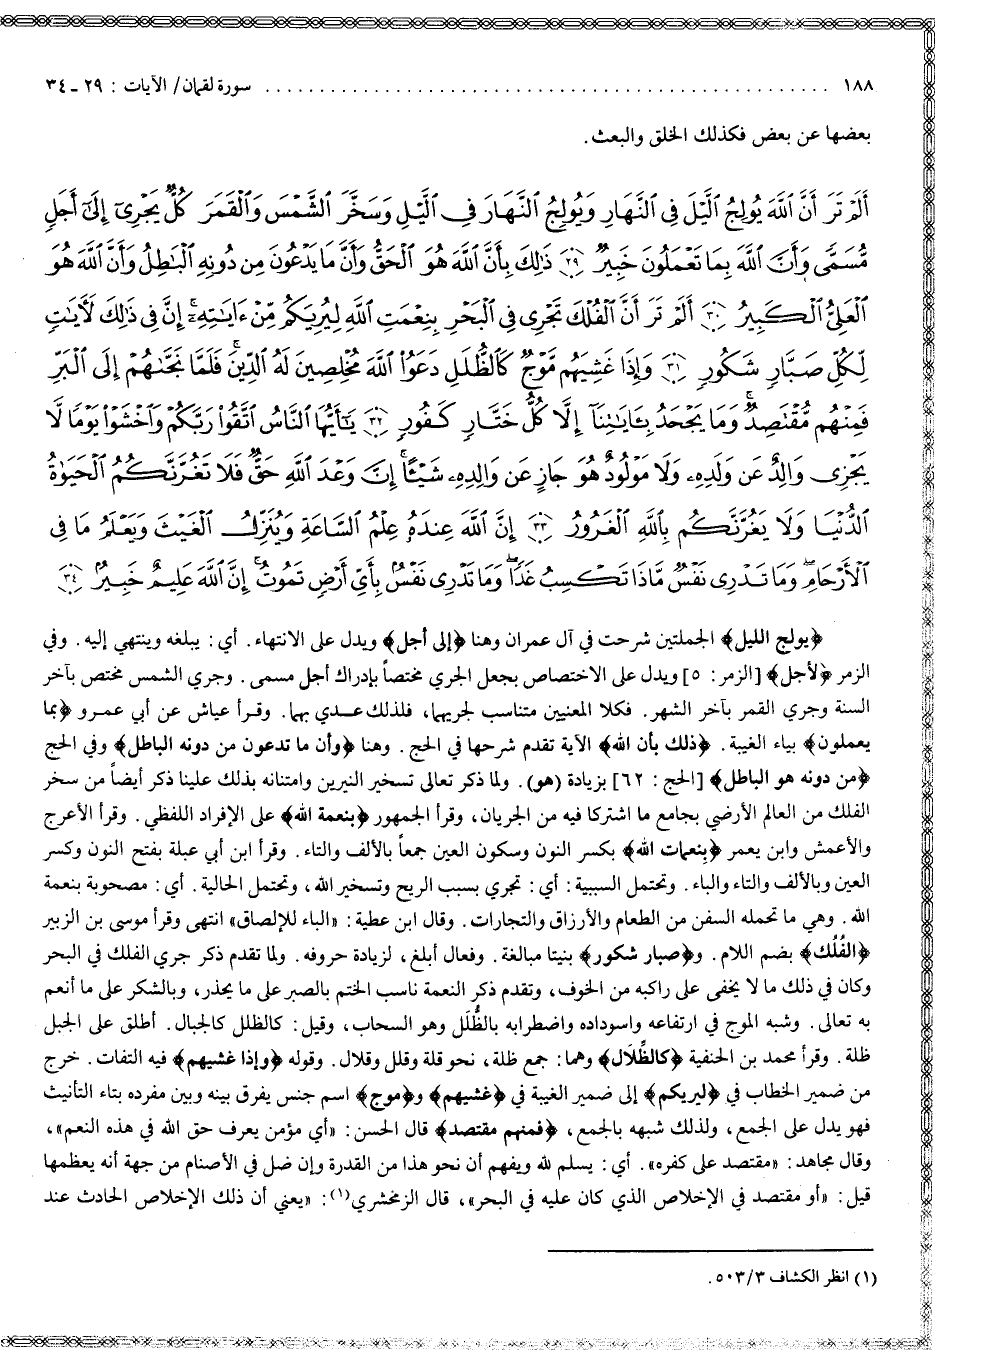 ١٨٨ ........................................ سورة لقمان/ الآيات : ٢٩ ـ ٣٤
بعضها عن بعض فكذلك الخلق والبعث.
أَلَمْ تَرَ أَنَّ ٱللَّهَ يُولِجُ ٱلَّيْلَ فِى ٱلنَّهَارِ وَيُولِجُ ٱلنَّهَارَ فِى ٱلَّيْلِ وَسَخَّرَ ٱلشَّمْسَ وَٱلْقَمَرَ كُلٌّ يَجْرِىٓ إِلَىٰٓ أَجَلٍ
مُّسَمًّى وَأَنَّ ٱللَّهَ بِمَا تَعْمَلُونَ خَبِيرٌ ﴿٢٩﴾ ذَٰلِكَ بِأَنَّ ٱللَّهَ هُوَ ٱلْحَقُّ وَأَنَّ مَا يَدْعُونَ مِن دُونِهِ ٱلْبَٰطِلُ وَأَنَّ ٱللَّهَ هُوَ
ٱلْعَلِىُّ ٱلْكَبِيرُ ﴿٣٠﴾ أَلَمْ تَرَ أَنَّ ٱلْفُلْكَ تَجْرِى فِى ٱلْبَحْرِ بِنِعْمَتِ ٱللَّهِ لِيُرِيَكُم مِّنْ ءَايَٰتِهِۦٓ ۚ إِنَّ فِى ذَٰلِكَ لَءَايَٰتٍ
لِّكُلِّ صَبَّارٍ شَكُورٍ ﴿٣١﴾ وَإِذَا غَشِيَهُم مَّوْجٌ كَٱلظُّلَلِ دَعَوُا۟ ٱللَّهَ مُخْلِصِينَ لَهُ ٱلدِّينَ ۚ فَلَمَّا نَجَّىٰهُمْ إِلَى ٱلْبَرِّ
فَمِنْهُم مُّقْتَصِدٌ ۚ وَمَا يَجْحَدُ بِـَٔايَٰتِنَآ إِلَّا كُلُّ خَتَّارٍ كَفُورٍ ﴿٣٢﴾ يَٰٓأَيُّهَا ٱلنَّاسُ ٱتَّقُوا۟ رَبَّكُمْ وَٱخْشَوْا۟ يَوْمًا لَّا
يَجْزِى وَالِدٌ عَن وَلَدِهِۦ وَلَا مَوْلُودٌ هُوَ جَازٍ عَن وَالِدِهِۦ شَيْـًٔا ۚ إِنَّ وَعْدَ ٱللَّهِ حَقٌّ فَلَا تَغُرَّنَّكُمُ ٱلْحَيَوٰةُ
ٱلدُّنْيَا وَلَا يَغُرَّنَّكُم بِٱللَّهِ ٱلْغَرُورُ ﴿٣٣﴾ إِنَّ ٱللَّهَ عِندَهُۥ عِلْمُ ٱلسَّاعَةِ وَيُنَزِّلُ ٱلْغَيْثَ وَيَعْلَمُ مَا فِى
ٱلْأَرْحَامِ ۖ وَمَا تَدْرِى نَفْسٌ مَّاذَا تَكْسِبُ غَدًا ۖ وَمَا تَدْرِى نَفْسٌۢ بِأَىِّ أَرْضٍ تَمُوتُ ۚ إِنَّ ٱللَّهَ عَلِيمٌ خَبِيرٌۢ ﴿٣٤﴾
﴿يولج الليل﴾ الجملتين شرحت في آل عمران وهنا ﴿إلى أجل﴾ ويدل على الانتهاء. أي: يبلغه وينتهي إليه. وفي
الزمر ﴿لأجل﴾ [الزمر: ٥] ويدل على الاختصاص بجعل الجري مختصاً بإدراك أجل مسمى. وجري الشمس مختص بآخر
السنة وجري القمر بآخر الشهر. فكلا المعنيين متناسب لجريهما، فلذلك عدي بهما. وقرأ عياش عن أبي عمرو ﴿بما
يعملون﴾ بياء الغيبة. ﴿ذلك بأن الله﴾ الآية تقدم شرحها في الحج. وهنا ﴿وأن ما تدعون من دونه الباطل﴾ وفي الحج
﴿من دونه هو الباطل﴾ [الحج: ٦٢] بزيادة (هو). ولما ذكر تعالى تسخير النيرين وامتنانه بذلك علينا ذكر أيضاً من سخر
الفلك من العالم الأرضي بجامع ما اشتركا فيه من الجريان، وقرأ الجمهور ﴿بنعمة الله﴾ على الإفراد اللفظي. وقرأ الأعرج
والأعمش وابن يعمر ﴿بنعمات الله﴾ بكسر النون وسكون العين جمعاً بالألف والتاء. وقرأ ابن أبي عبلة بفتح النون وكسر
العين وبالألف والتاء والباء. وتحتمل السببية: أي: تجري بسبب الريح وتسخير الله، وتحتمل الحالية. أي: مصحوبة بنعمة
الله. وهي ما تحمله السفن من الطعام والأرزاق والتجارات. وقال ابن عطية: «الباء للإلصاق» انتهى وقرأ موسى بن الزبير
﴿الفُلُك﴾ بضم اللام. و﴿صبار شكور﴾ بنيتا مبالغة. وفعال أبلغ، لزيادة حروفه. ولما تقدم ذكر جري الفلك في البحر
وكان في ذلك ما لا يخفى على راكبه من الخوف، وتقدم ذكر النعمة ناسب الختم بالصبر على ما يحذر، وبالشكر على ما أنعم
به تعالى. وشبه الموج في ارتفاعه واسوداده واضطرابه بالظُّلَل وهو السحاب، وقيل: كالظلل كالجبال. أطلق على الجبل
ظلة. وقرأ محمد بن الحنفية ﴿كالظِّلال﴾ وهما: جمع ظلة، نحو قلة وقلل وقلال. وقوله ﴿وإذا غشيهم﴾ فيه التفات. خرج
من ضمير الخطاب في ﴿ليريكم﴾ إلى ضمير الغيبة في ﴿غشيهم﴾ و﴿موج﴾ اسم جنس يفرق بينه وبين مفرده بتاء التأنيث
فهو يدل على الجمع، ولذلك شبهه بالجمع، ﴿فمنهم مقتصد﴾ قال الحسن: «أي مؤمن يعرف حق الله في هذه النعم»،
وقال مجاهد: «مقتصد على كفره». أي: يسلم لله ويفهم أن نحو هذا من القدرة وإن ضل في الأصنام من جهة أنه يعظمها
قيل: «أو مقتصد في الإخلاص الذي كان عليه في البحر»، قال الزمخشري(١): «يعني أن ذلك الإخلاص الحادث عند
(١) انظر الكشاف ٥٠٣/٣.